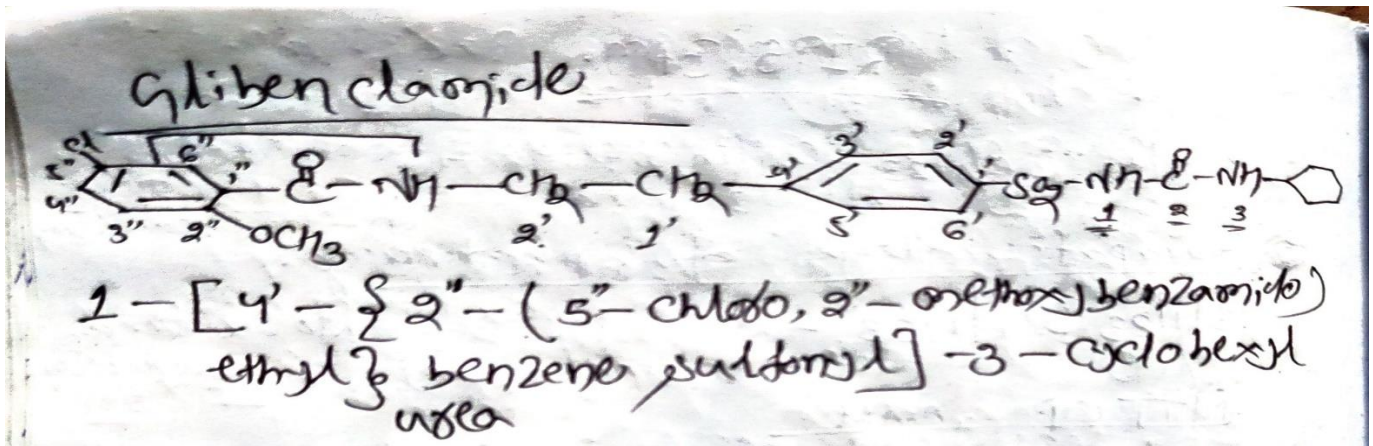 Glibenclamide
Cl 5" 6" 1" 4" 3" 2" OCH3 O C-NH-CH2-CH2 2' 1' 4' 3' 2' 1' 5' 6' SO2-NH-C-NH O 1 2 3
1-[4'-{2"-(5"-chloro, 2"-methoxy benzamido)
ethyl} benzene sulfonyl]-3-cyclohexyl
urea